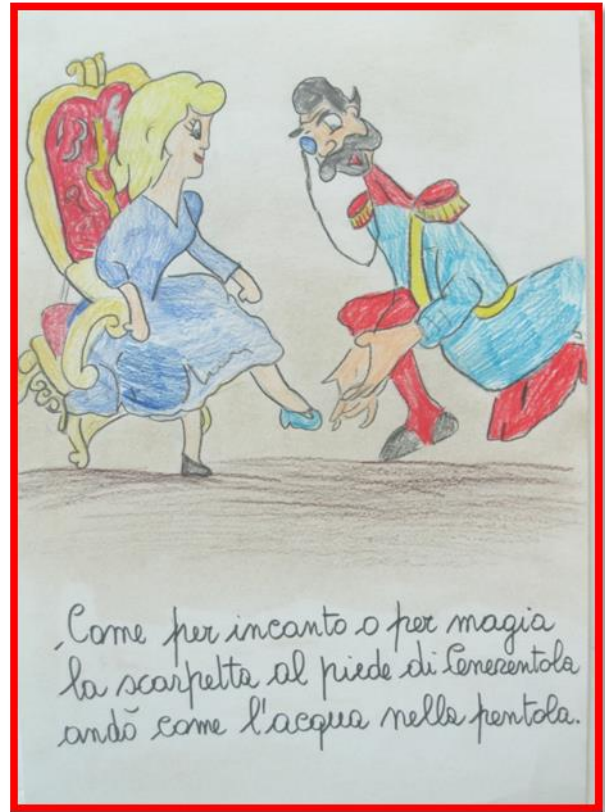 Come per incanto o per magia
la scarpetta al piede di Cenerentola
andò come l'acqua nella pentola.